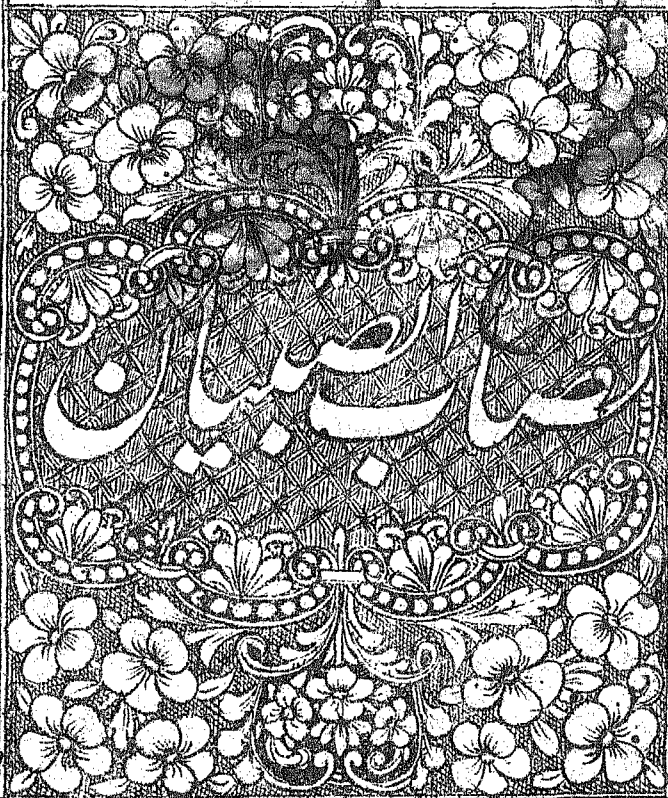 نصاب الصبیان